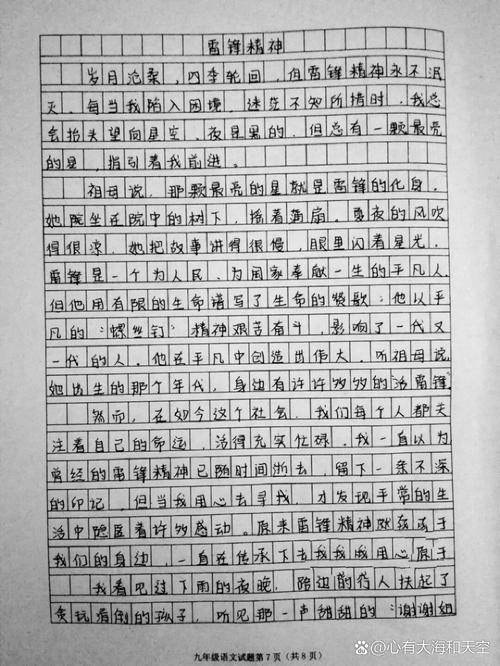 雷锋精神
岁月沧桑，四季轮回，但雷锋精神永不泯
灭。每当我陷入困境，迷茫不知所措时，我总
会抬头望向星空，夜是黑的，但总有一颗最亮
的星，指引着我前进。
祖母说，那颗最亮的星就是雷锋的化身。
她院坐在院中的树下，摇着蒲扇。夏夜的风吹
得很凉，她把故事讲得很慢，眼里闪着星光。
雷锋是一个为人民、为国家奉献一生的平凡人
但他用有限的生命谱写了生命的赞歌：他以平
凡的“螺丝钉”精神艰苦奋斗，影响了一代又
一代的人。他在平凡中创造出伟大。听祖母说
她出生的那个年代，身边有许许多多的活雷锋
然而，在如今这个社会，我们每个人都关
注着自己的命运，活得充实忙碌。我一自以为
曾经的雷锋精神已随时间逝去，留下一条不深
的印记，但当我用心去寻找，才发现平常的生
活中隐匿着许多感动。原来雷锋精神就于
我们的身边，一自在传承下去我我成用心原于
我看见过下雨的夜晚，路边的行人扶起了
贪玩着倒的孩子，听见那一声甜甜的“谢谢姐
九年级语文试题第7页（共8页）
@心有大海和天空